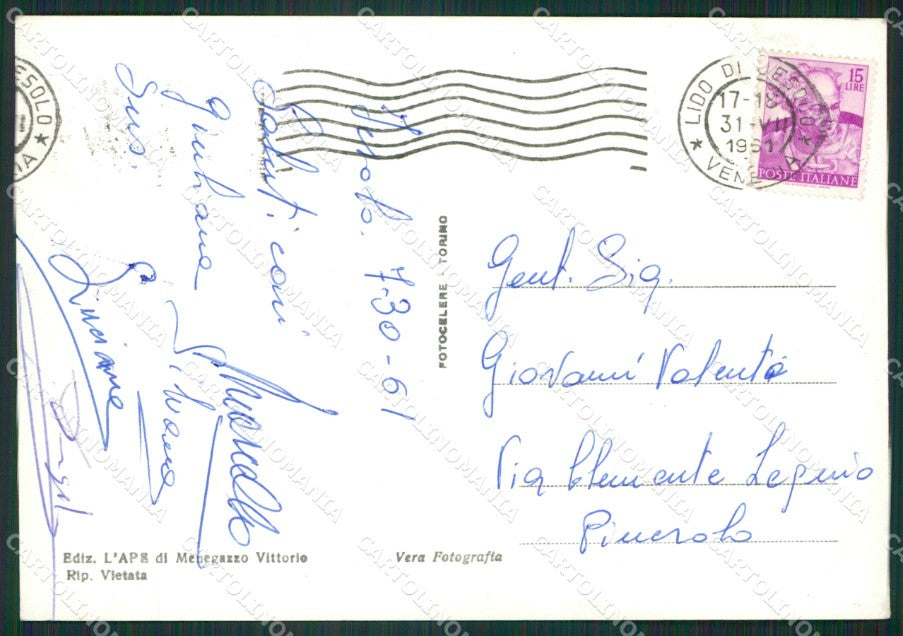 LIDO DI JESOLO
17-18
31-VII
1961
VENEZIA
15
LIRE
POSTE ITALIANE
Jesolo. 7-30-61
Saluti cari
Giuliana
Silvana
Luciana
FOTOCELERE - TORINO
Gent. Sig.
Giovanni Valente
Via Clemente
Pinerolo
Ediz. L'APE di Menegazzo Vittorio
Rip. Vietata
Vera Fotografia
CARTOLINOMANIA